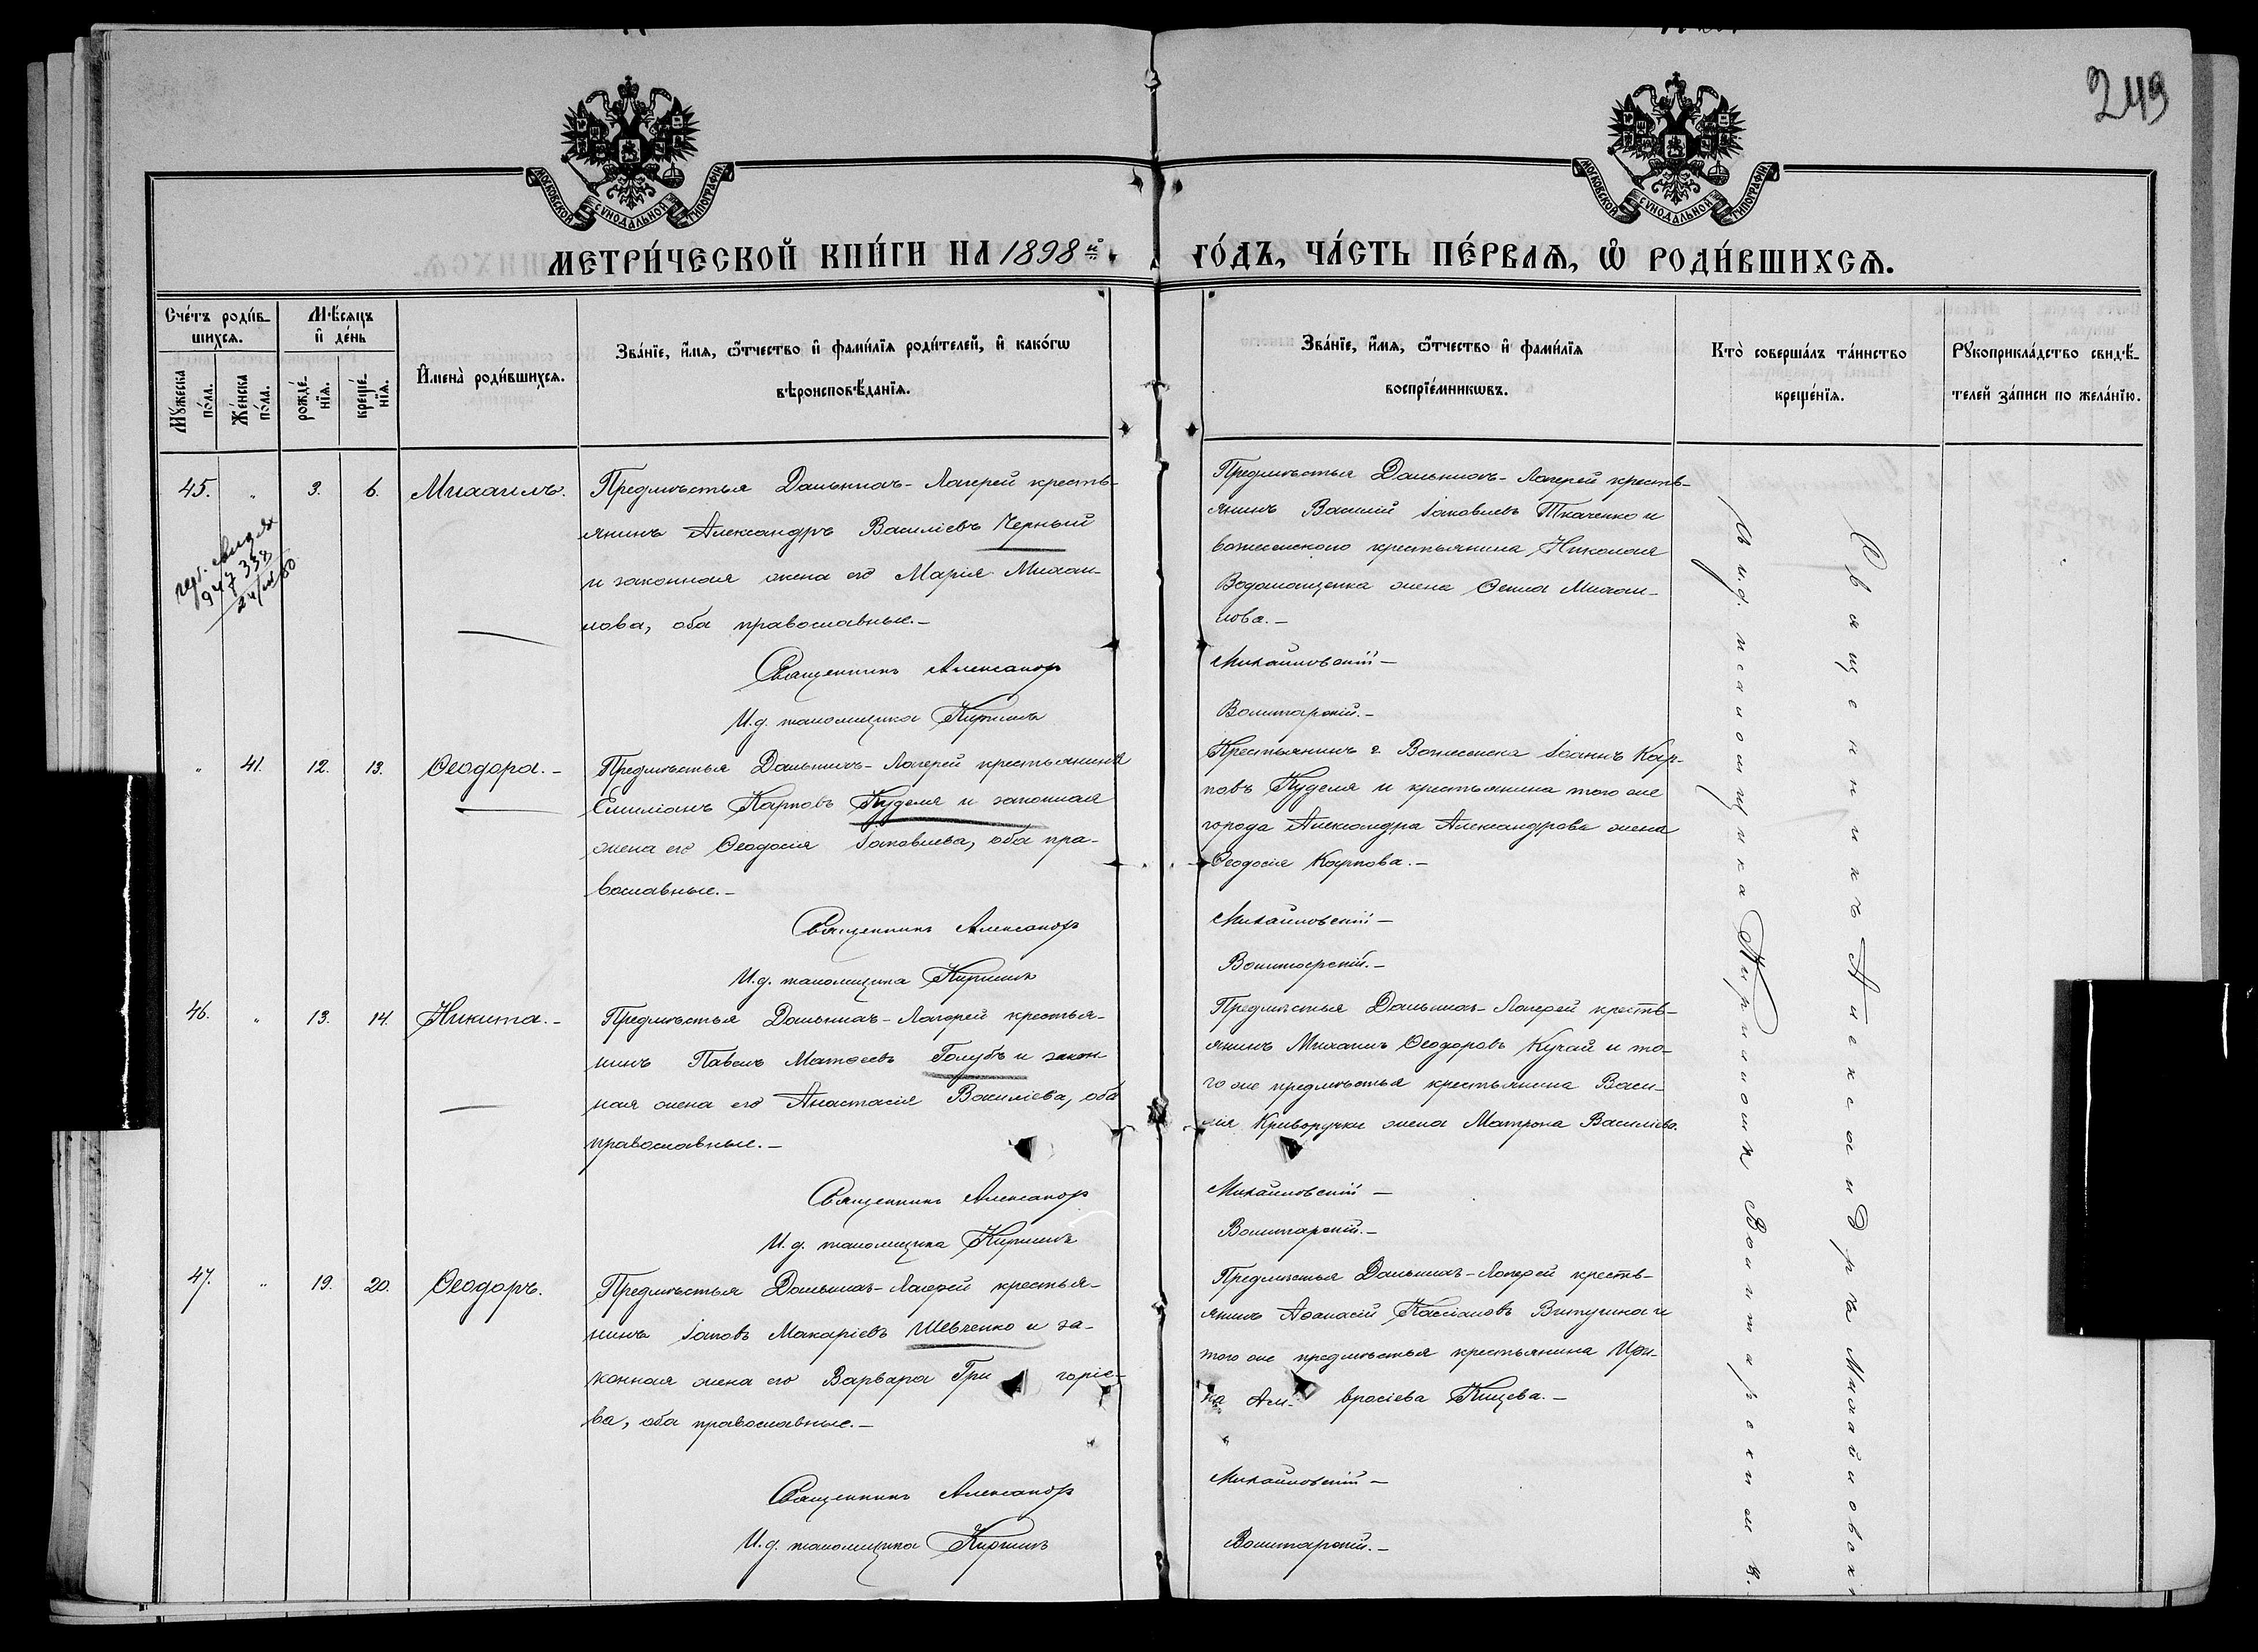 249
МОСКОВСКОЙ СѴНОДАЛЬНОЙ ТИПОГРАФІИ
МОСКОВСКОЙ СѴНОДАЛЬНОЙ ТИПОГРАФІИ
МЕТРИ́ЧЕСКОЙ КНИ́ГИ НА 1898й
ГО́ДЪ, ЧА́СТЬ ПЕ́РВАѦ, Ѡ҆ РОДИ́ВШИХСѦ.
Счётъ роди́в-
шихсѧ.
Мѣ́сѧцъ
и҆ де́нь
Мꙋ́жеска по́ла.
Же́нска по́ла.
рожде́-
нїѧ.
креще́-
нїѧ.
И҆мена̀ роди́вшихсѧ.
Зва́нїе, и҆́мѧ, ѻ҆́тчество и҆ фами́лїѧ роди́телей, и҆ како́гѡ
вѣроисповѣ́данїѧ.
Зва́нїе, и҆́мѧ, ѻ҆́тчество и҆ фами́лїѧ
воспрїе́мникѡвъ.
Кто̀ соверша́лъ та́инство
креще́нїѧ.
Рꙋкоприкла́дство свидѣ́-
телей за́писи по жела́нїю.
45. " 3. 6. Михаилъ.
Предмѣстья Дальнихъ-Лагерей кресть-
янинъ Александръ Василіевъ Черный
и законная жена его Марія Михаи-
лова, оба православные.-
Священникъ Александр
И.д. псаломщика Кирилл
947338
Предмѣстья Дальнихъ-Лагерей кресть-
янинъ Василій Іаковлевъ Ткаченко и
вознесенскаго крестьянина Николая
жена Михаи-
лова.-
Михайловскій-
Волитарскій.-
" 41. 12. 13. Ѳеодора.-
Предмѣстья Дальнихъ-Лагерей крестьянинъ
Емиліанъ Карповъ Куделя и законная
жена его Ѳеодосія Іаковлева, оба пра-
вославные.-
Священникъ Александр
И.д. псаломщика Кирилл
Крестьянинъ г. Вознесенска Іоаннъ Кар-
повъ Куделя и крестьянина того же
города Александра Александрова жена
Ѳеодосія Карпова.-
Михайловскій-
Волитарскій.-
46. " 13. 14. Никита.-
Предмѣстья Дальнихъ-Лагерей крестья-
нинъ Павелъ Матѳеевъ Голубъ и закон-
ная жена его Анастасія Василіева, оба
православные.-
Священникъ Александр
И.д. псаломщика Кирилл
Предмѣстья Дальнихъ-Лагерей кресть-
янинъ Михаилъ Ѳеодоровъ Кучай и то-
го же предмѣстья крестьянина Васи-
лія Криворучки жена Матрона Василіева.
Михайловскій-
Волитарскій.-
47. " 19. 20. Ѳеодоръ.
Предмѣстья Дальнихъ-Лагерей крестья-
нинъ Іаковъ Макаріевъ Шевченко и за-
конная жена его Варвара Григоріе-
ва, оба православные.-
Священникъ Александр
И.д. псаломщика Кирилл
Предмѣстья Дальнихъ-Лагерей кресть-
янинъ Аѳанасій Кассіановъ и
того же предмѣстья крестьянина Ири-
на Амвросіева
Михайловскій-
Волитарскій.-
Священникъ Александръ Михайловскі
И и.д. псаломщика Кириллъ Волитарскій.